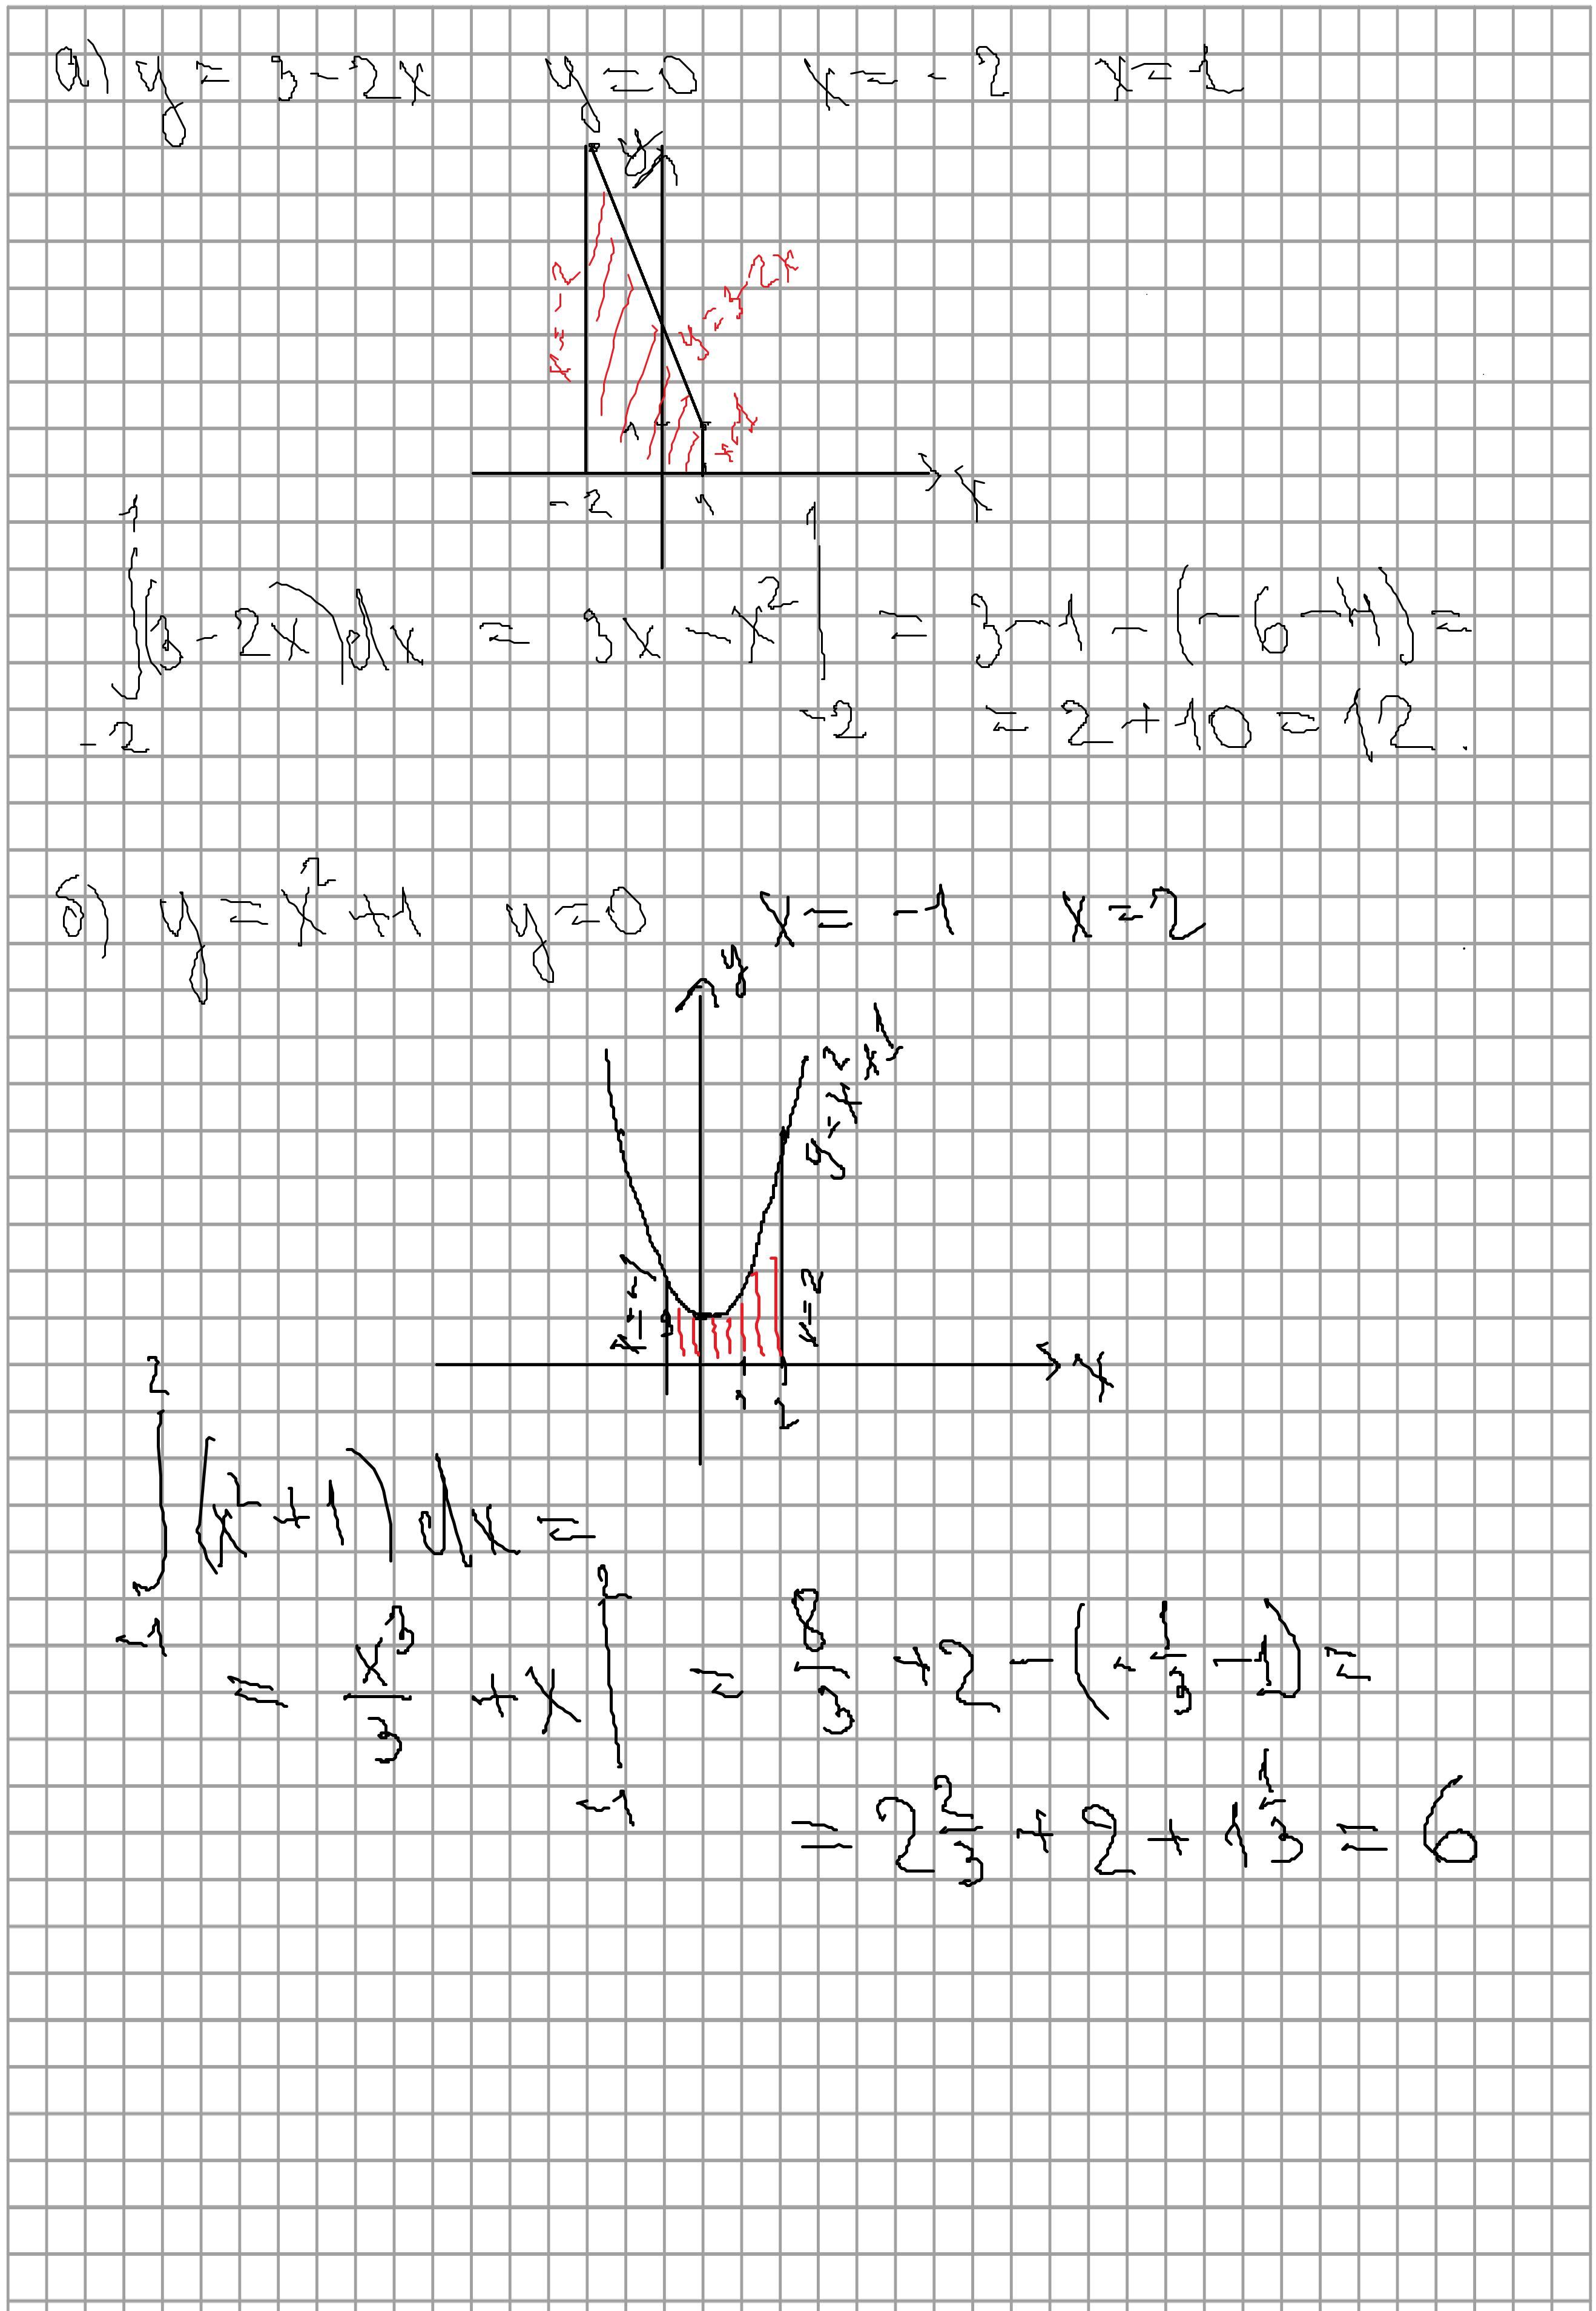 а) y = 3 - 2x y = 0 x = -2 x = 1
y
x = -2
y = 3 - 2x
1
x = 1
-2 1 x
∫₋₂¹ (3 - 2x) dx = 3x - x² |₋₂¹ = 3 - 1 - (-6 - 4) =
= 2 + 10 = 12.
б) y = x² + 1 y = 0 x = -1 x = 2
y
y = x² + 1
x = -1
x = 2
x
1 2
∫₋₁² (x² + 1) dx =
= x³/3 + x |₋₁² = 8/3 + 2 - (-1/3 - 1) =
= 2 2/3 + 2 + 1 1/3 = 6